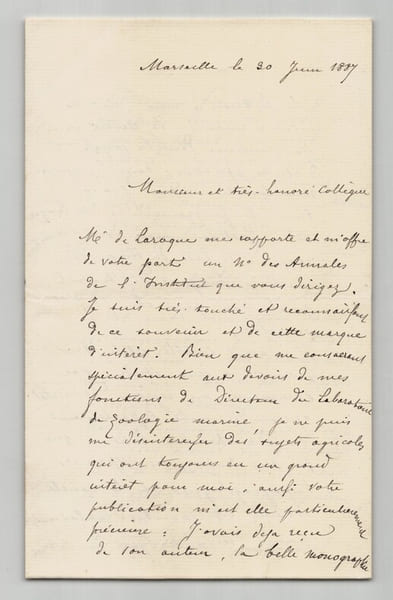 Marseille le 30 Juin 1887
Monsieur et très-honoré Collègue
Mr de Laroque me rapporte et m'offre
de votre part un No des Annales
de l'Institut que vous dirigez.
Je suis très-touché et reconnaissant
de ce souvenir et de cette marque
d'intérêt. Bien que me consacrant
spécialement aux devoirs de mes
fonctions de Directeur du Laboratoire
de Zoologie marine, je ne puis
me désintéresser des sujets agricoles
qui ont toujours eu un grand
intérêt pour moi ; aussi votre
publication m'est elle particulièrement
précieuse ; J'avais deja reçu
de son auteur, la belle monographie